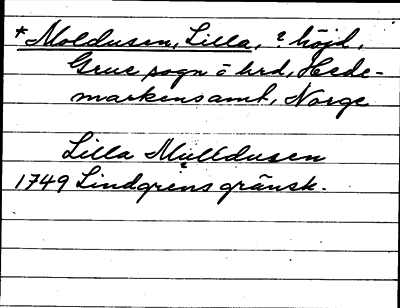 *Moldusen, Lilla, ? höjd,
Grue sogn o hrd, Hede-
markens amt, Norge
Lilla Mulldusen
1749 Lindgrens gränsk.